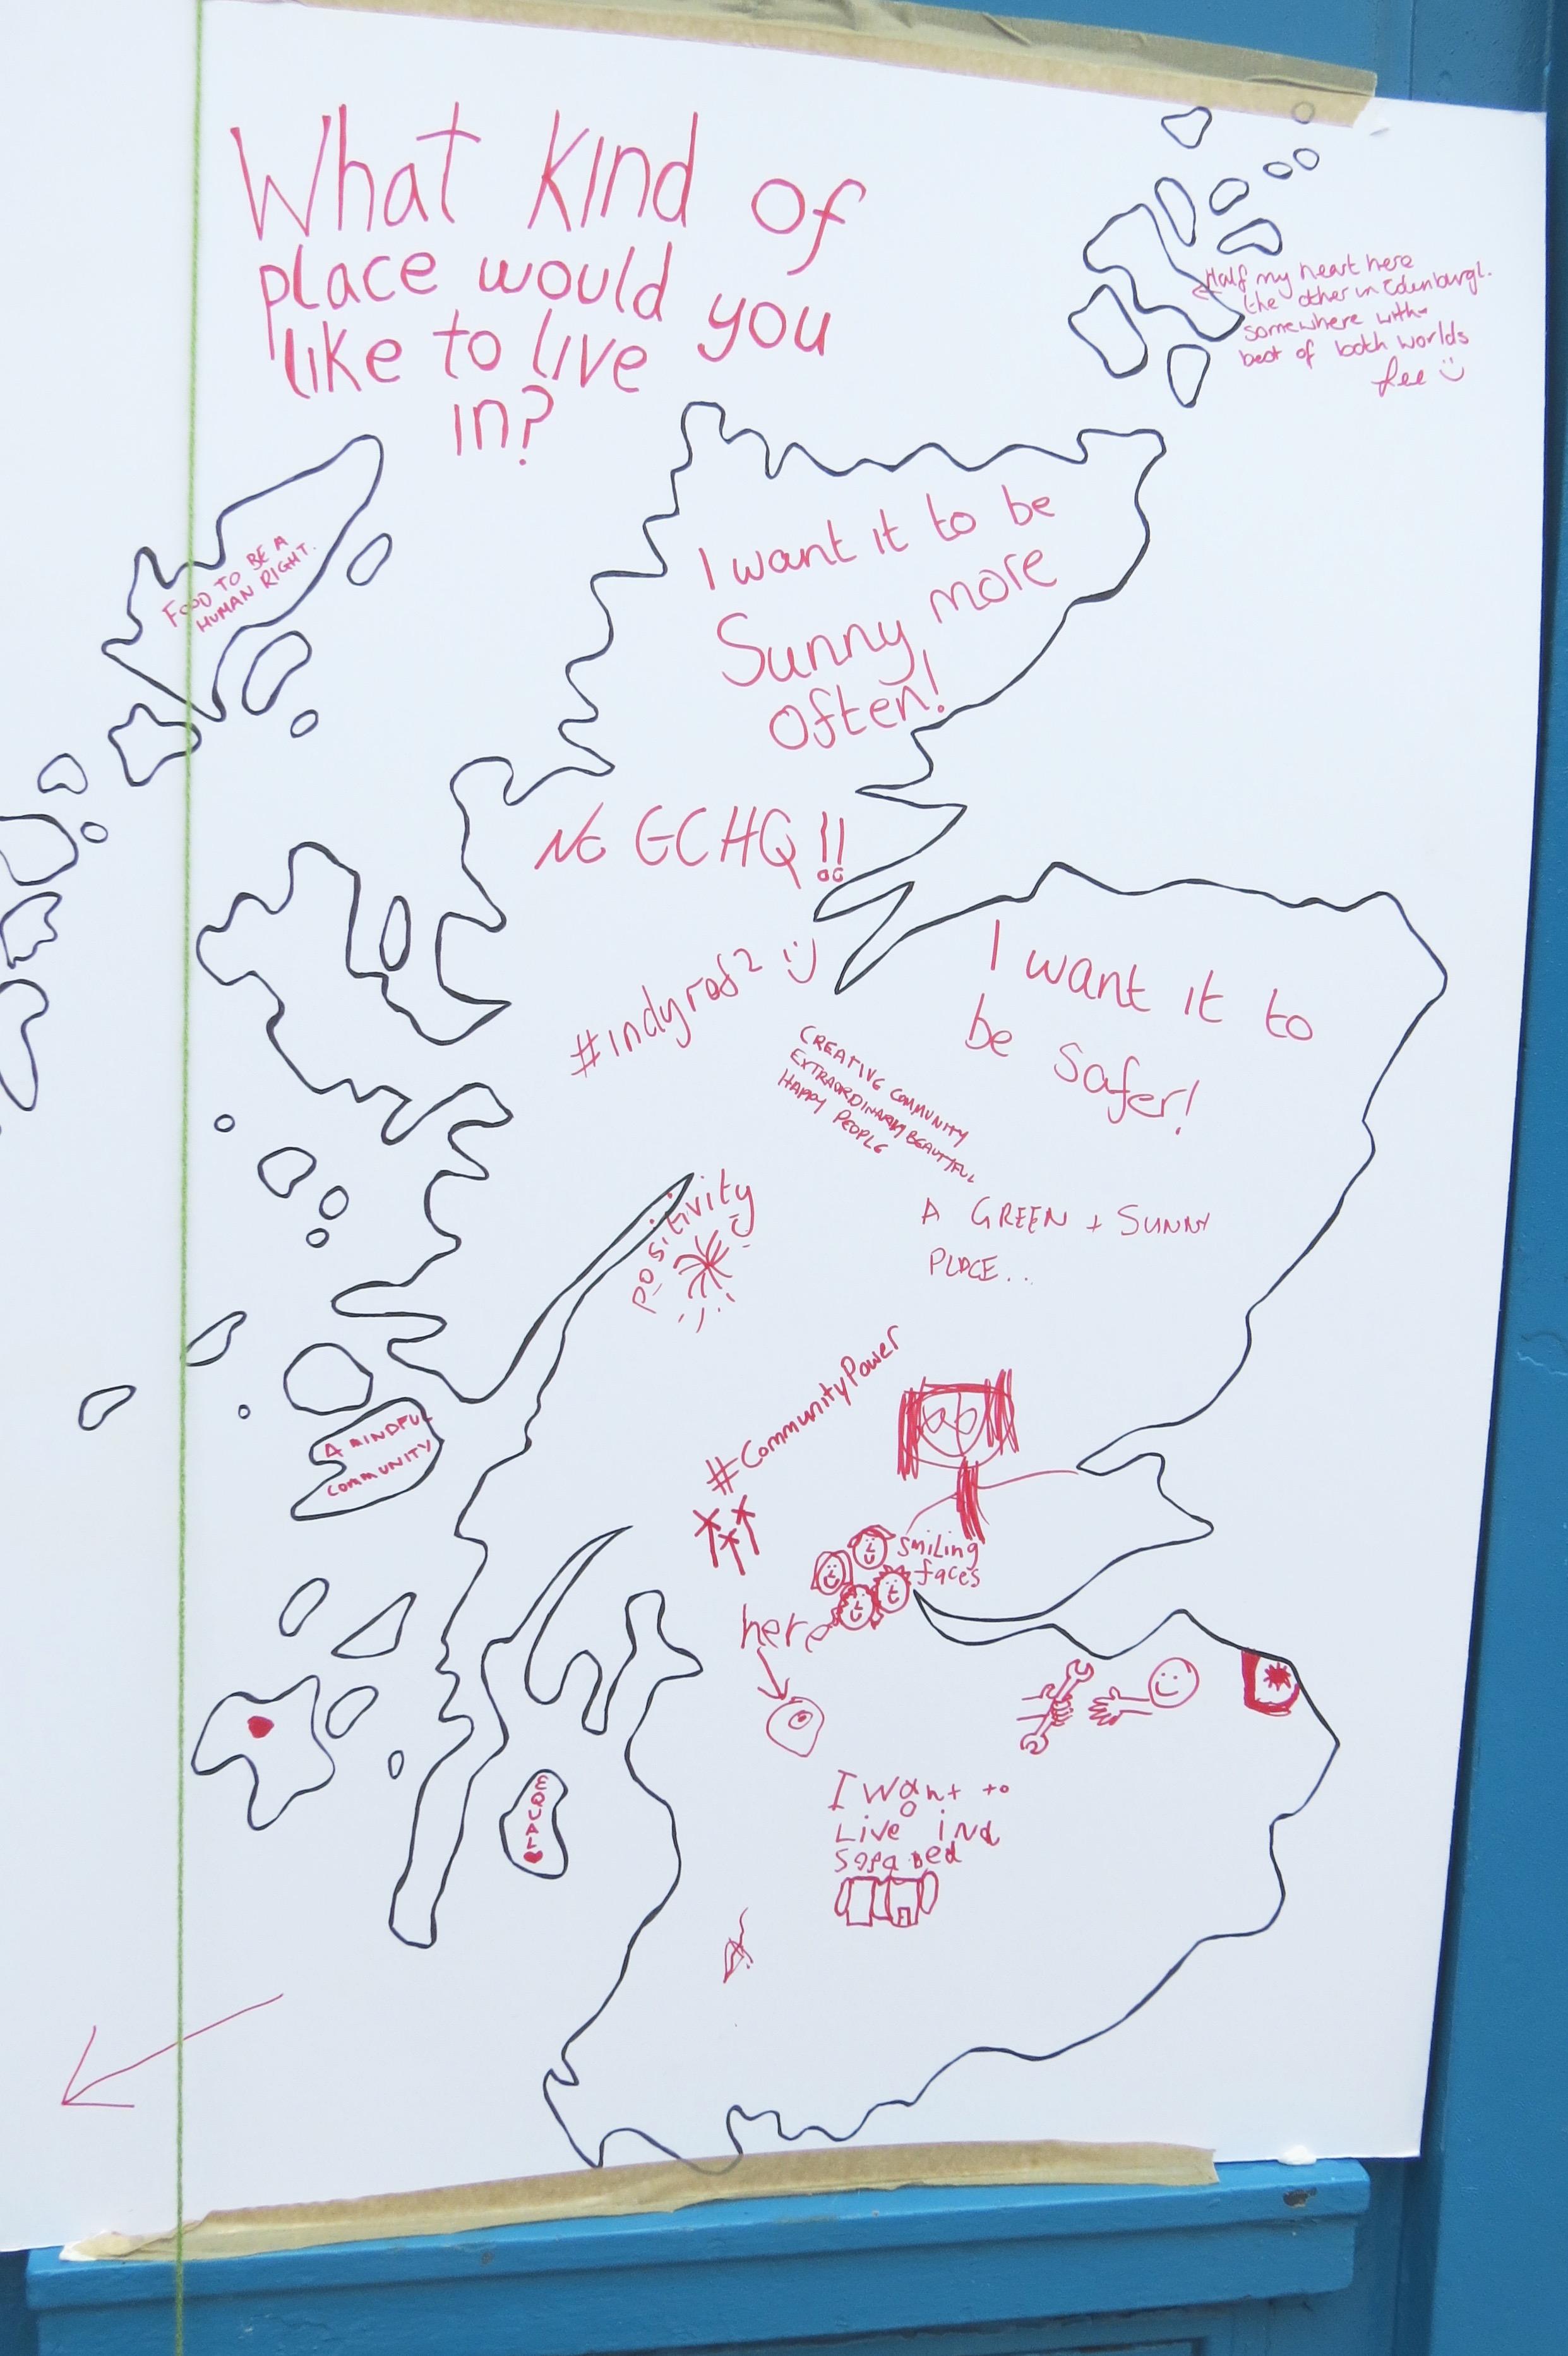 What kind of
place would you
like to live
in?
Half my heart here
the other in Edenburgh.
somewhere with
best of both worlds
FOOD TO BE A
HUMAN RIGHT.
I want it to be
Sunny more
often!
NO GCHQ!!
#indyref2 :)
I want it to
be Safer!
CREATIVE COMMUNITY
EXTRAORDINARY BEAUTIFUL
HAPPY PEOPLE
positivity
A GREEN + SUNNY
PLACE..
#CommunityPower
A MINDFUL
COMMUNITY
smiling
faces
here
EQUAL
I want to
Live in a
sofa bed